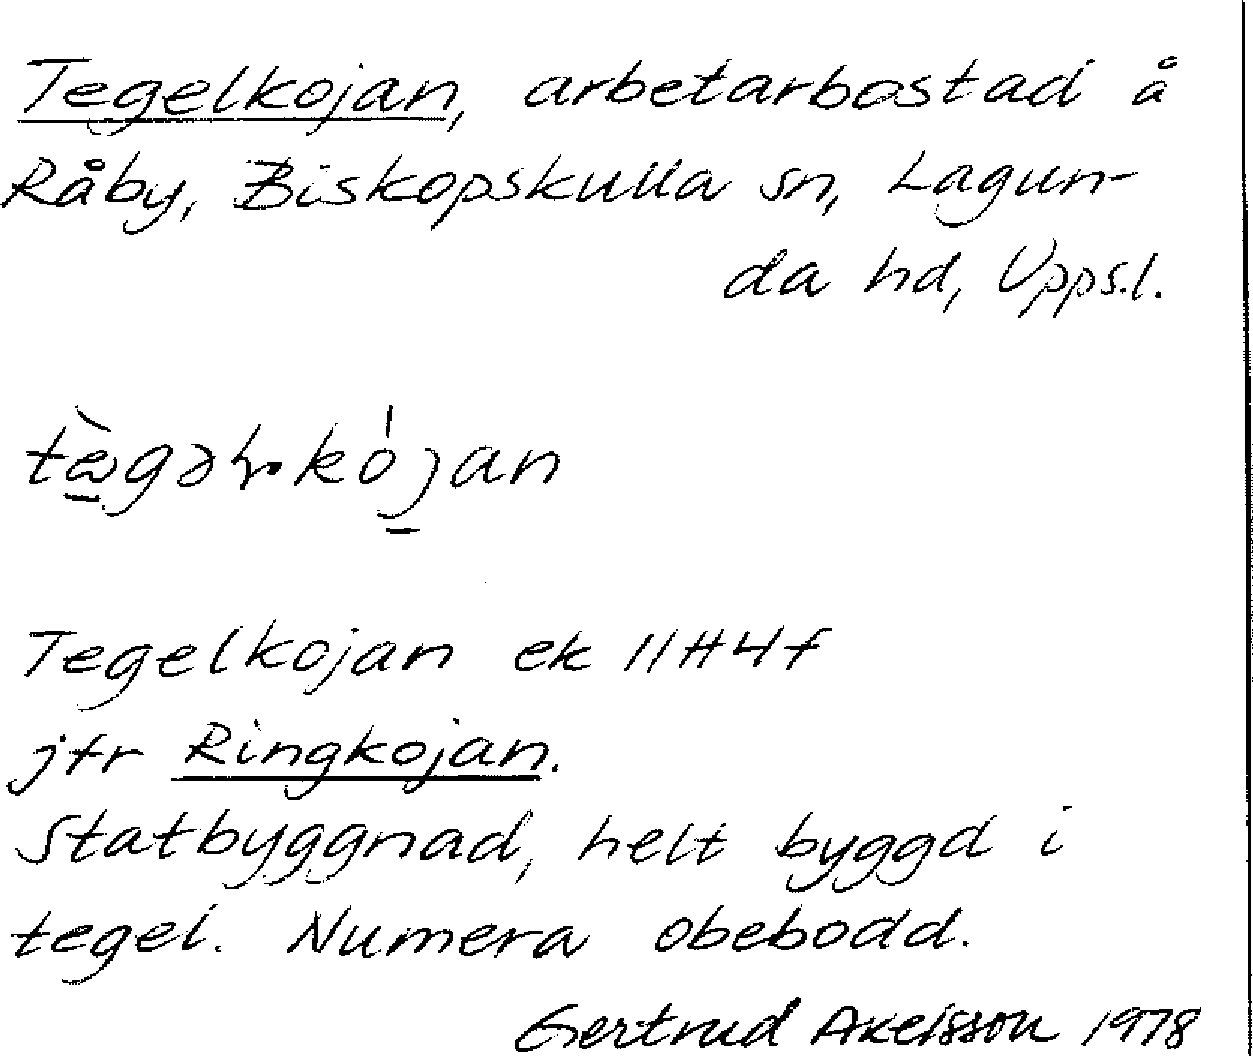 Tegelkojan, arbetarbostad å
Råby, Biskopskulla sn, Lagun-
da hd, Upps.l.
Tegelkojan ek 11H4f
jfr Ringkojan.
Statbyggnad, helt byggd i
tegel. Numera obebodd.
Gertrud Axelsson 1978